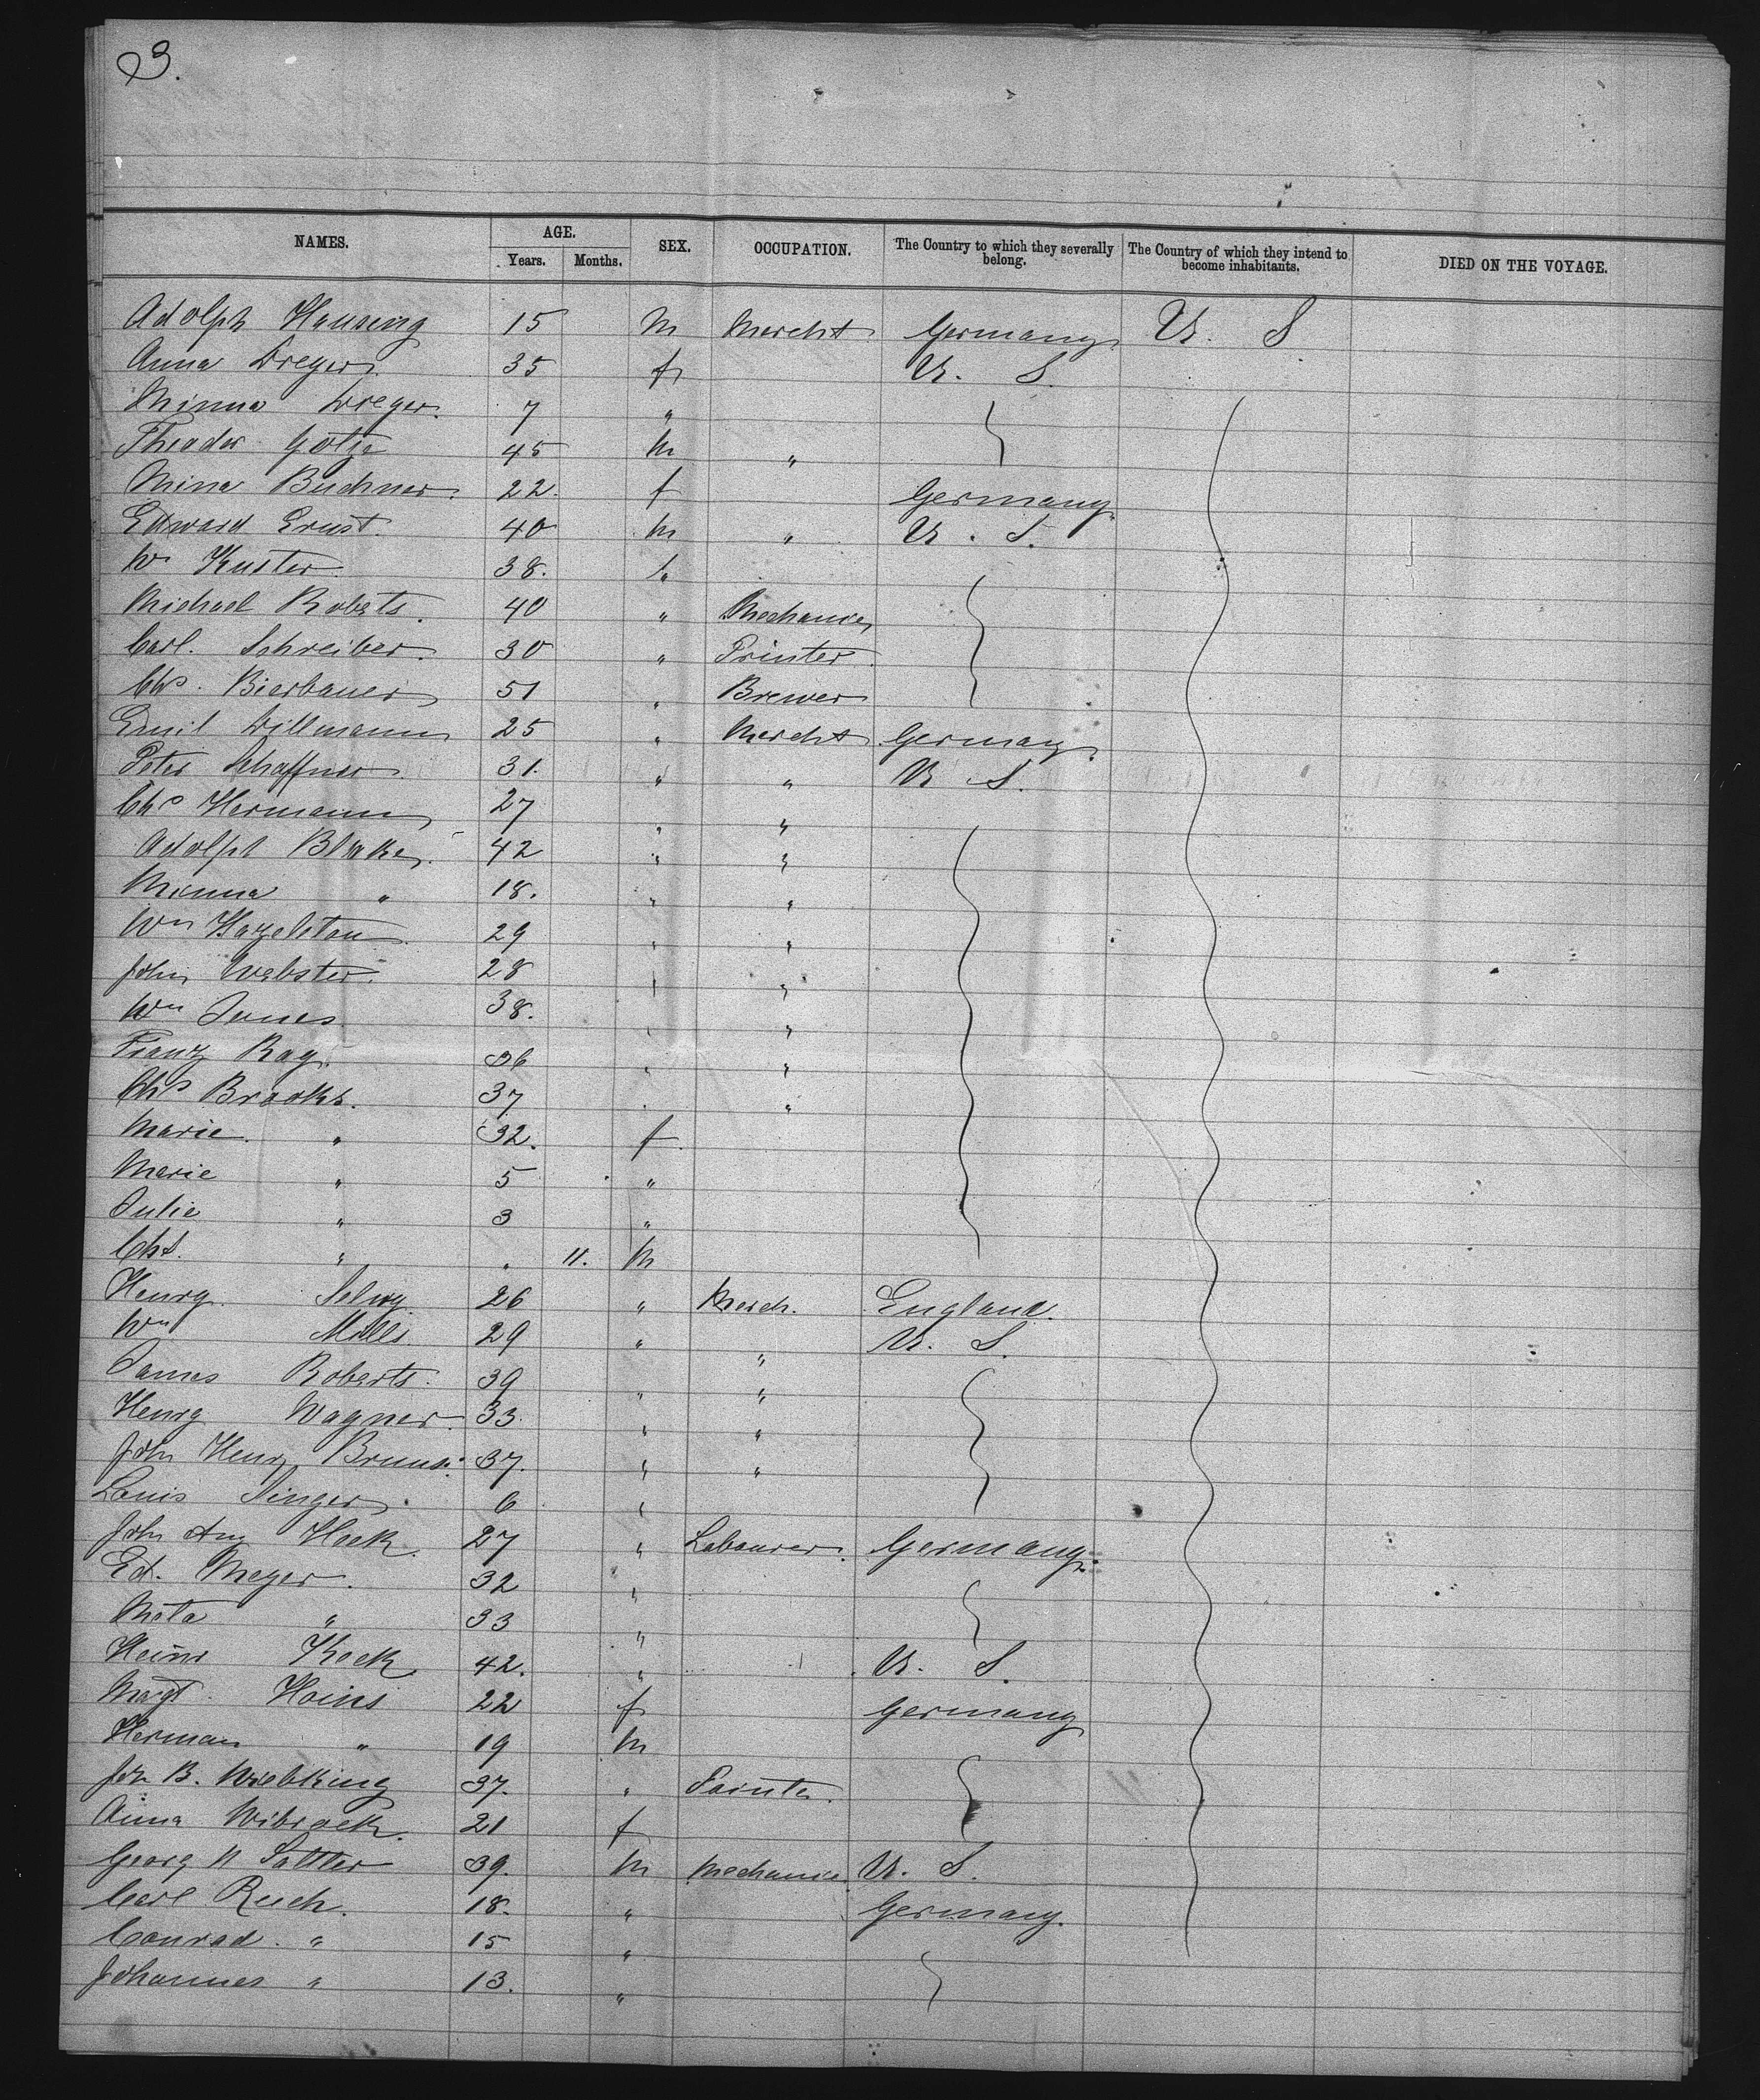 3.
NAMES. AGE. Years. Months. SEX. OCCUPATION. The Country to which they severally belong. The Country of which they intend to become inhabitants. DIED ON THE VOYAGE.
Adolph Hansing 15 M Mercht Germany U. S
Anna Dreyer. 35 f U. S.
Minna Dreyer. 7 "
Theodor Götze 45 M "
Mina Buchner. 22. f Germany
Edward Ernst. 40 M " U. S.
Wm Kuster. 38. "
Michael Roberts. 40 " Mechanic
Carl. Schreiber. 30 " Printer.
Chs. Bierbauer 51 " Brewer
Emil Dillmann 25 " Mercht Germany.
Peter Schaffner 31. " " U. S.
Chs Hermann 27 " "
Adolph Blake. 42 " "
Minna " 18. " "
Wm Hazelton. 29 " "
John Webster. 28 " "
Wm Jones 38. " "
Franz Ray. 36 " "
Chs Brooks. 37 " "
Marie. " 32. f
Marie " 5 "
Julie " 3 "
Chs. " " 11. M
Henry. Selwy. 26 " Merch. England.
Wm Mills. 29 " " U. S.
James Roberts. 39 " "
Henry Wagner. 33. " "
John Henry Bruns. 37. " "
Louis Singer. 6 "
John Aug Heek. 27 " Labourer. Germany.
Ed. Meyer. 32 "
Meta " 33 "
Heinr Kock 42. " U. S.
Magt. Heins 22 f Germany
Herman " 19 M
Joh B. Wiebking 37. " Painter.
Anna Wibrock. 21 f
Georg H Sattler 39. M Mechanic. U. S.
Carl Reich. 18. " Germany.
Conrad. " 15 "
Johannes " 13. "